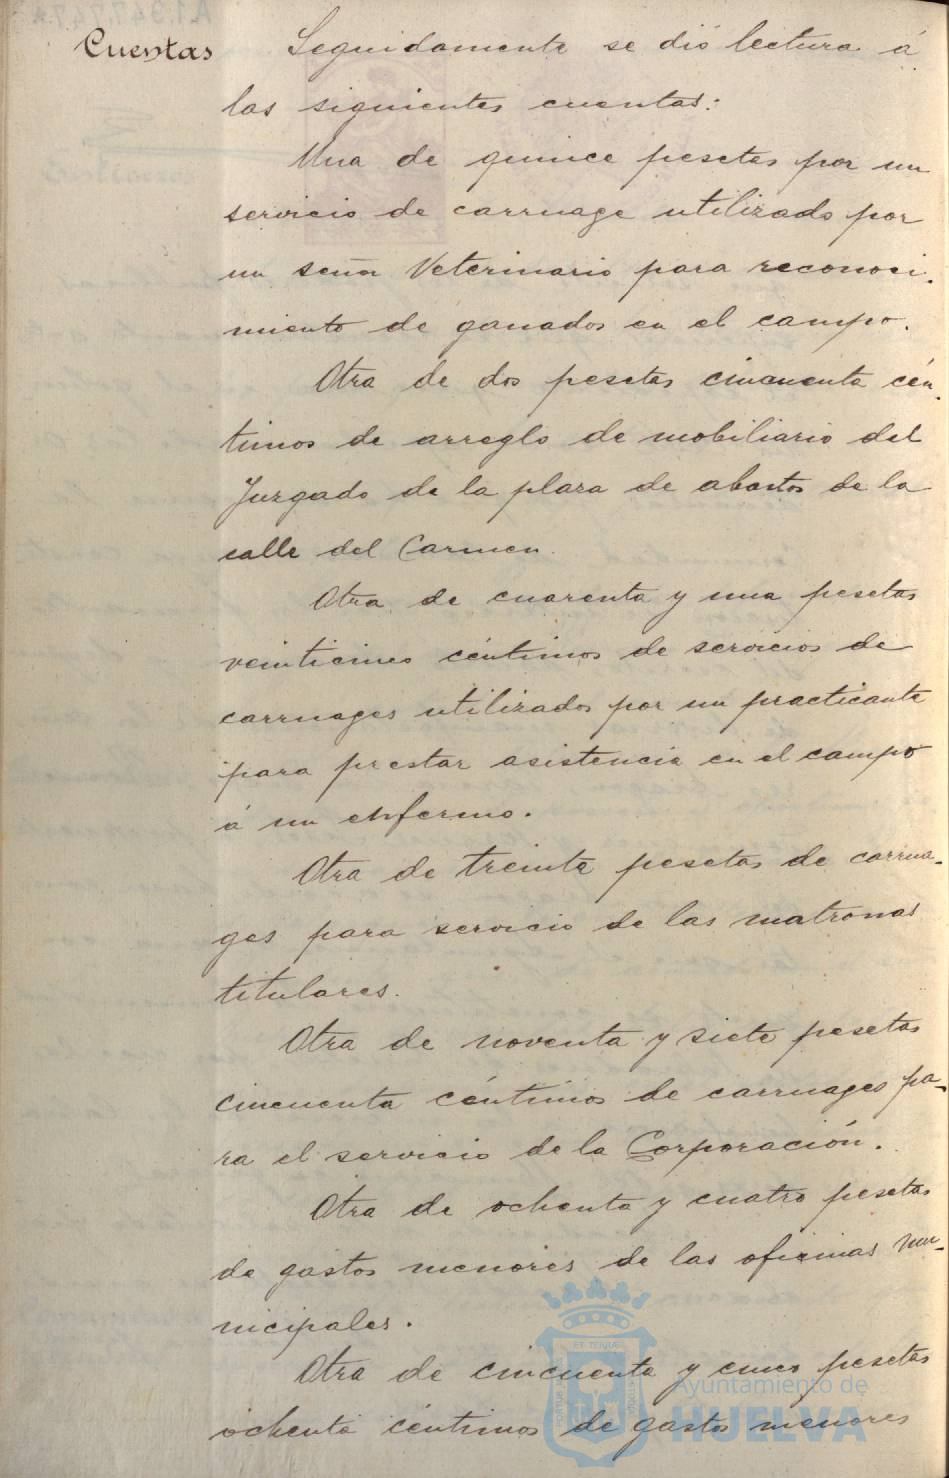 Cuentas
Seguidamente se dió lectura á
las siguientes cuentas:
Una de quince pesetas por un
servicio de carruage utilizado por
un señor Veterinario para reconoci-
miento de ganados en el campo.
Otra de dos pesetas cincuenta cén-
timos de arreglo de mobiliario del
Juzgado de la plaza de abastos de la
calle del Carmen.
Otra de cuarenta y una pesetas
veinticinco céntimos de servicios de
carruages utilizados por un practicante
para prestar asistencia en el campo
á un enfermo.
Otra de treinta pesetas de carrua-
ges para servicio de las matronas
titulares.
Otra de noventa y siete pesetas
cincuenta céntimos de carruages pa-
ra el servicio de la Corporación.
Otra de ochenta y cuatro pesetas
de gastos menores de las oficinas mu-
nicipales.
Otra de cincuenta y cinco pesetas
ochenta céntimos de gastos menores
Ayuntamiento de
HUELVA